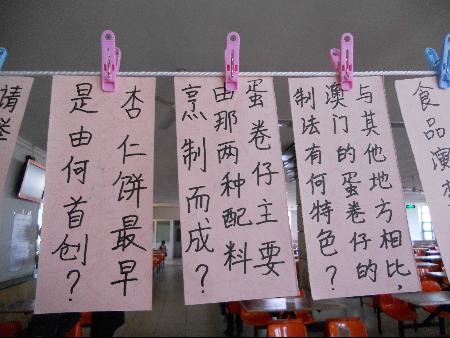 请举
杏仁饼最早
是由何首创？
蛋卷仔主要
由那两种配料
烹制而成？
与其他地方相比，
澳门的蛋卷仔的
制法有何特色？
食品演